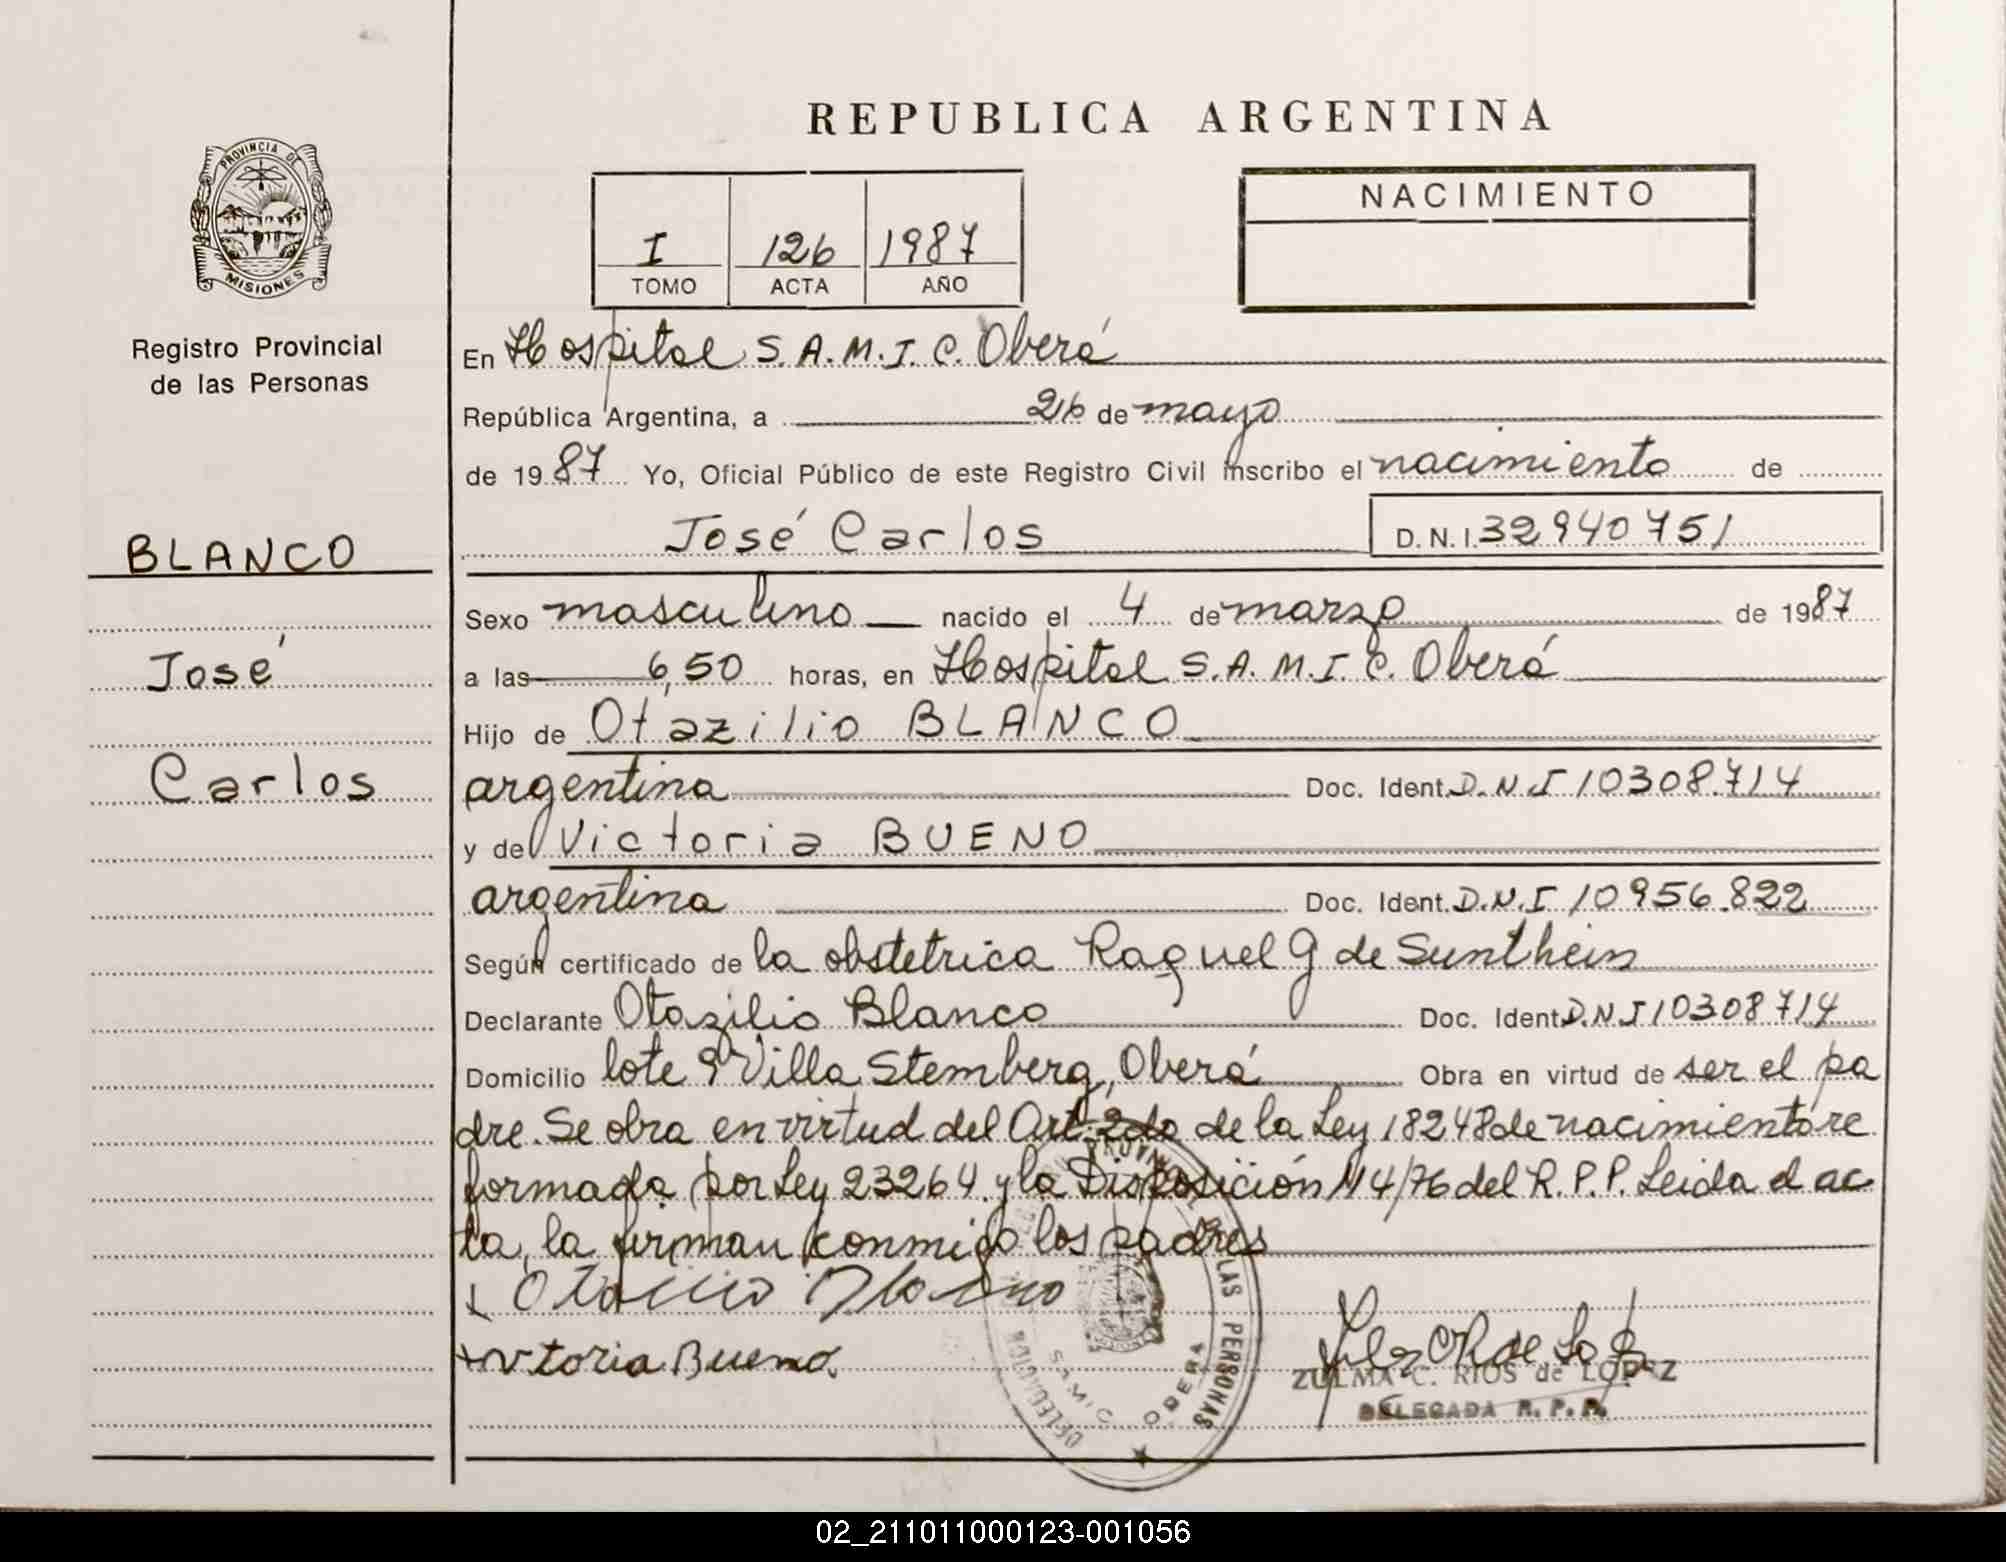 REPUBLICA ARGENTINA
PROVINCIA DE
MISIONES
Registro Provincial
de las Personas
BLANCO
José
Carlos
I 126 1987
TOMO ACTA AÑO
NACIMIENTO
En Hospital S.A.M.I.C. Oberá
República Argentina, a 26 de mayo
de 1987 Yo, Oficial Público de este Registro Civil inscribo el nacimiento de
José Carlos D.N.I. 32940751
Sexo masculino nacido el 4 de marzo de 1987
a las 6,50 horas, en Hospital S.A.M.I.C. Oberá
Hijo de Otazilio BLANCO
argentina Doc. Ident. D.N.I 10308.714
y de Victoria BUENO
argentina Doc. Ident. D.N.I 10956.822
Según certificado de la obstetrica Raquel G de Sunthein
Declarante Otazilio Blanco Doc. Ident. D.N.I 10308714
Domicilio lote 9 Villa Stemberg, Oberá Obra en virtud de ser el pa
dre. Se obra en virtud del Art. 2do de la Ley 18248 de nacimiento re
formada por Ley 23264 y la Disposición 114/76 del R.P.P. Leida el ac
ta, la firman conmigo los padres
Otazilio Blanco
Vitoria Bueno.
LAS PERSONAS
SAMIC OBERA
ZULMA C. RIOS de LOPEZ
DELEGADA R. P. P.
02_211011000123-001056